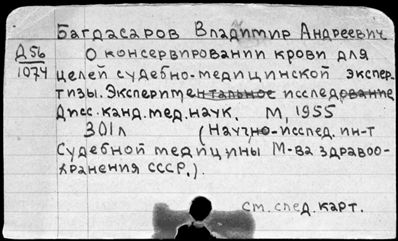 Багдасаров Владимир Андреевич
Д56
1074
О консервировании крови для
целей судебно-медицинской экспер-
тизы. Экспериментальное исследование
Дисс. канд. мед. наук. М, 1955
301л (Научно-исслед. ин-т
Судебной медицины М-ва здравоо-
хранения СССР.).
см. след. карт.